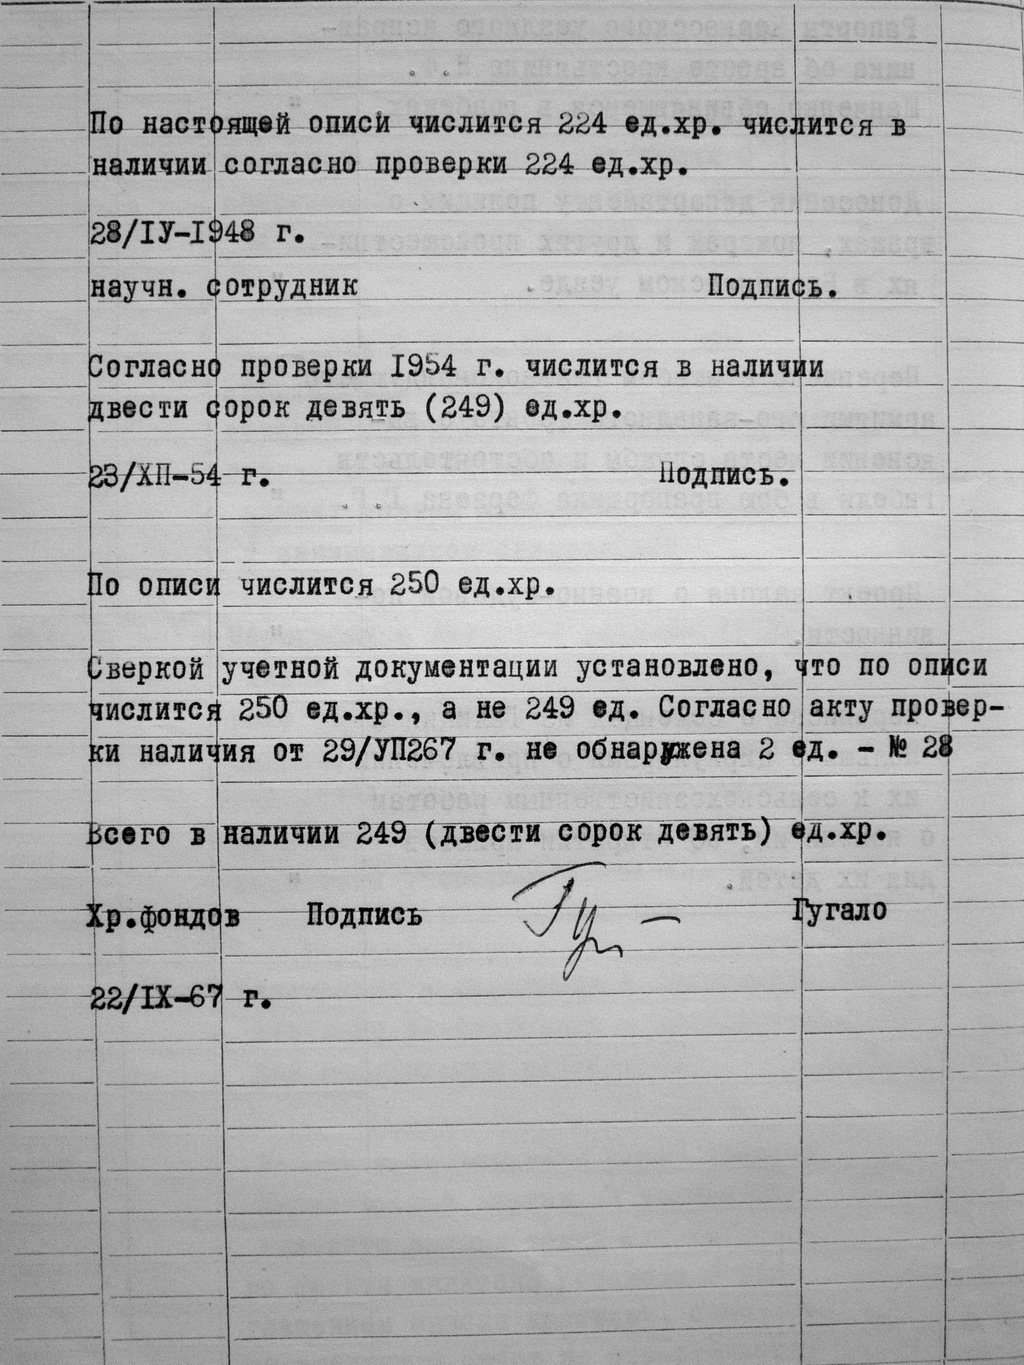 По настоящей описи числится 224 ед.хр. числится в
наличии согласно проверки 224 ед.хр.
28/ІУ-І948 г.
научн. сотрудник Подпись.
Согласно проверки І954 г. числится в наличии
двести сорок девять (249) ед.хр.
23/ХП-54 г. Подпись.
По описи числится 250 ед.хр.
Сверкой учетной документации установлено, что по описи
числится 250 ед.хр., а не 249 ед. Согласно акту провер-
ки наличия от 29/УП267 г. не обнаружена 2 ед. - № 28
Всего в наличии 249 (двести сорок девять) ед.хр.
Хр.фондов Подпись Гугало
22/ІХ-67 г.